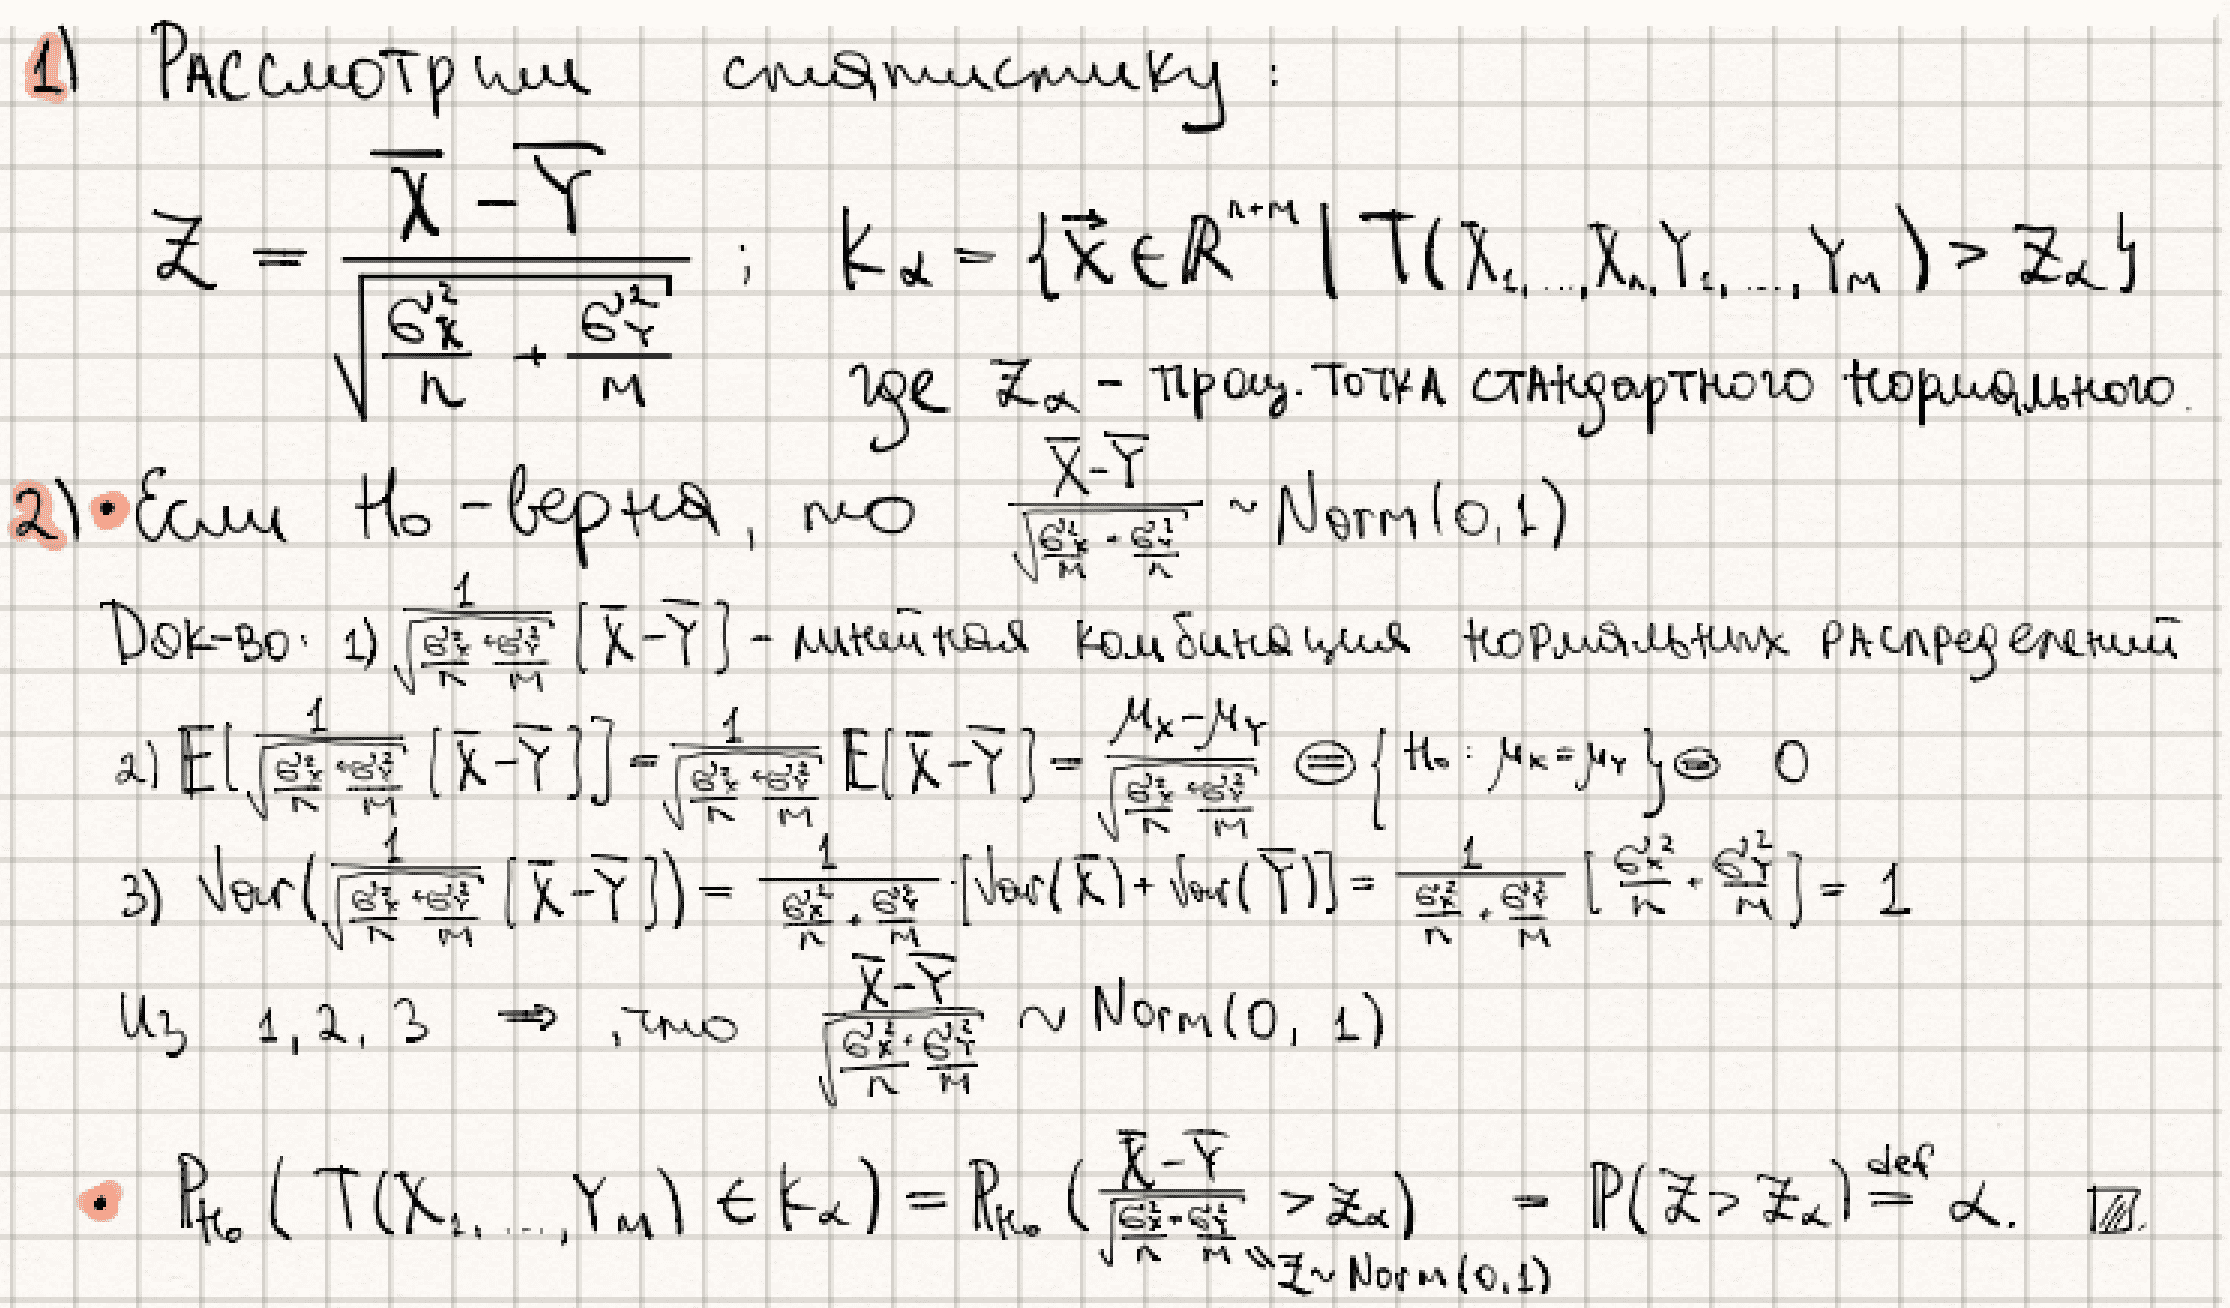 1) Рассмотрим статистику:
Z = (X̄ − Ȳ) / √(σ²_X/n + σ²_Y/m) ; K_α = {x⃗ ∈ ℝ^{n+m} | T(X₁, ..., Xₙ, Y₁, ..., Y_m) > Z_α}
где Z_α - проц. точка стандартного нормального.
2) • Если H₀ - верна, то (X̄ − Ȳ) / √(σ²_X/m + σ²_Y/n) ~ Norm(0,1)
Док-во: 1) 1/√(σ²_X/n + σ²_Y/m) [X̄ − Ȳ] - линейная комбинация нормальных распределений
2) 𝔼[1/√(σ²_X/n + σ²_Y/m) [X̄ − Ȳ]] = 1/√(σ²_X/n + σ²_Y/m) 𝔼[X̄ − Ȳ] = (μ_X − μ_Y)/√(σ²_X/n + σ²_Y/m) ⊜ {H₀: μ_X = μ_Y} ⊜ 0
3) Var(1/√(σ²_X/n + σ²_Y/m) [X̄ − Ȳ]) = 1/(σ²_X/n + σ²_Y/m) · [Var(X̄) + Var(Ȳ)] = 1/(σ²_X/n + σ²_Y/m) [σ²_X/n + σ²_Y/m] = 1
Из 1, 2, 3 ⇒, что (X̄ − Ȳ)/√(σ²_X/n + σ²_Y/m) ~ Norm(0, 1)
• P_{H₀}(T(X₁, ..., Y_m) ∈ K_α) = P_{H₀}((X̄ − Ȳ)/√(σ²_X/n + σ²_Y/m) > Z_α) = ℙ(Z > Z_α) =^{def} α.
Z ~ Norm(0,1)